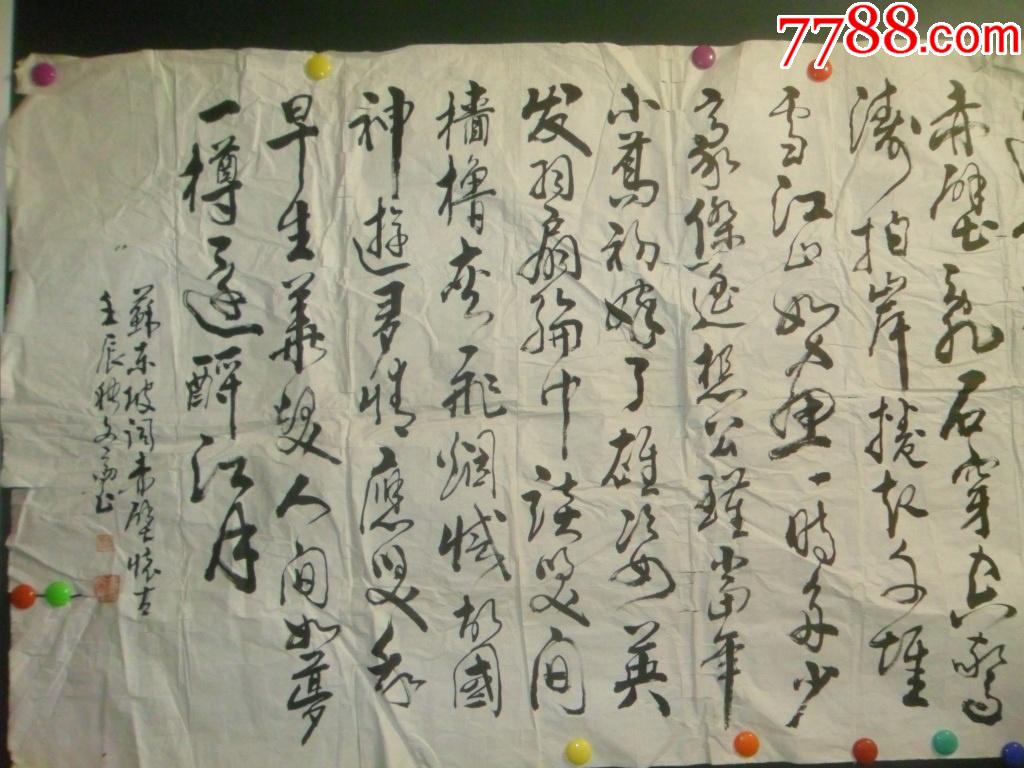 赤壁乱石穿空惊
涛拍岸捲起千堆
雪江山如画一时多少
豪傑遥想公瑾当年
小喬初嫁了雄姿英
发羽扇綸巾談笑间
檣櫓灰飛烟滅故國
神遊多情應笑我
早生華髮人间如夢
一樽还酹江月
蘇东坡词赤壁懷古
壬辰秋文
7788.com